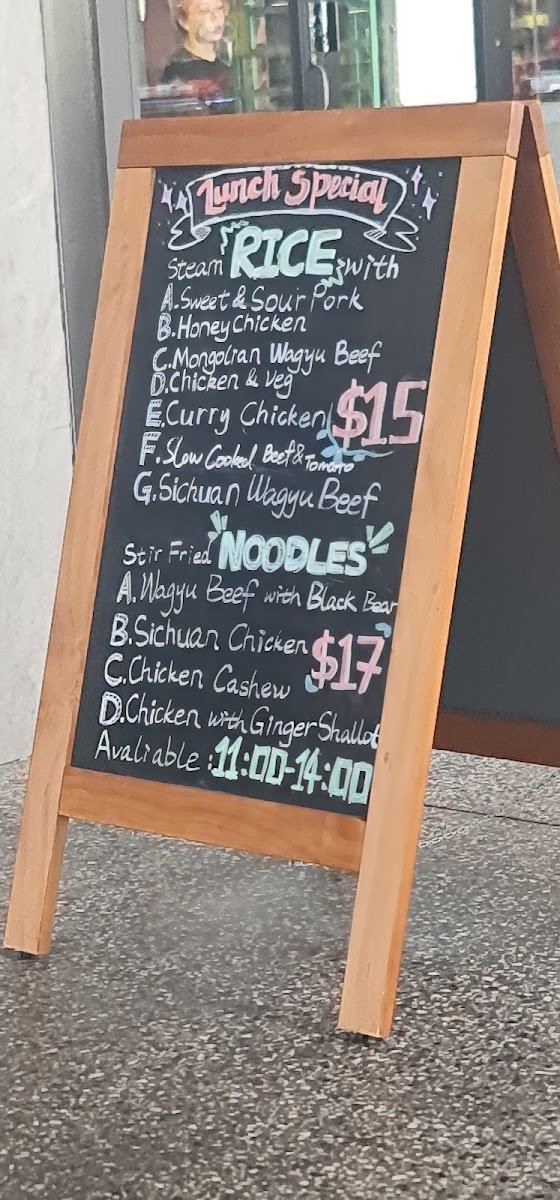 Lunch Special
Steam RICE with
A.Sweet & Sour Pork
B.Honey Chicken
C.Mongolian Wagyu Beef
D.Chicken & Veg
E.Curry Chicken
$15
F.Slow Cooked Beef & Tomato
G.Sichuan Wagyu Beef
Stir Fried NOODLES
A.Wagyu Beef with Black Bean
B.Sichuan Chicken
$17
C.Chicken Cashew
D.Chicken with Ginger Shallot
Avaliable :11:00-14:00